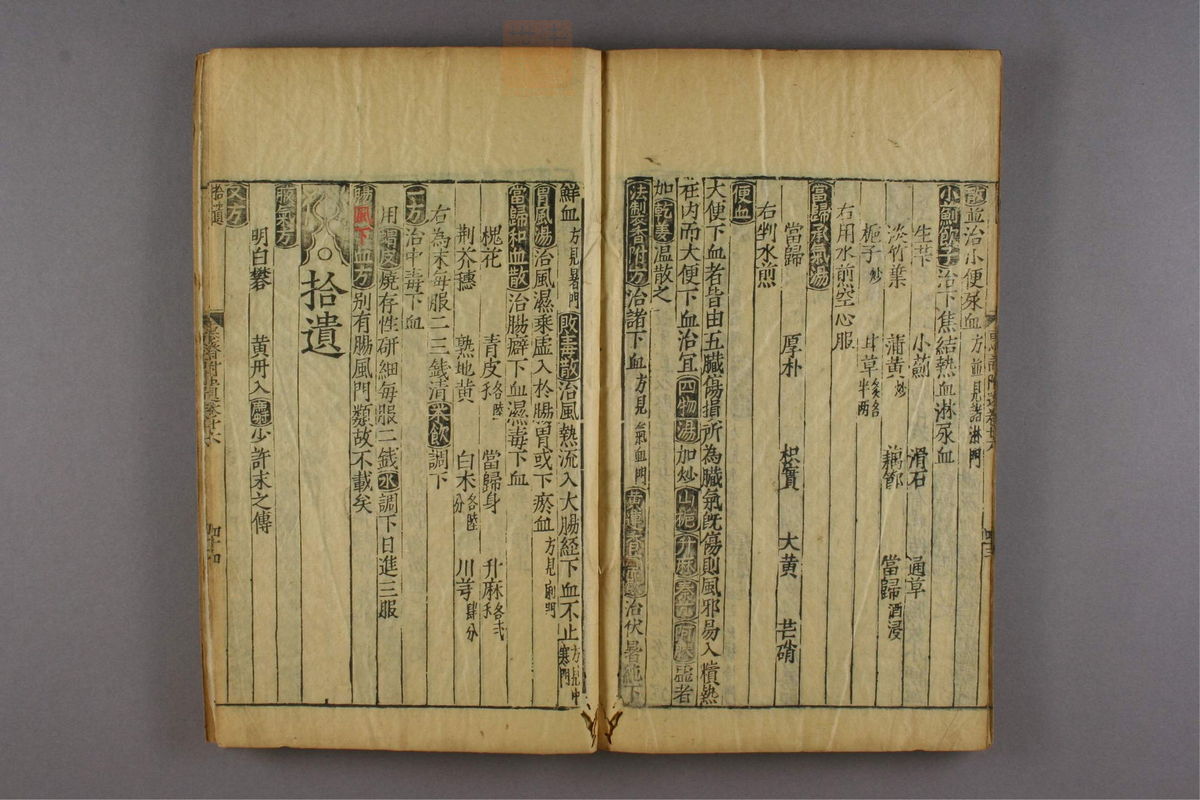 散並治小便尿血方並見諸淋門
小薊飲子治下焦結熱血淋尿血
生芐 小薊 滑石 通草
淡竹葉 蒲黃炒 藕節 當歸酒浸
梔子炒 甘草炙各半兩
右用水煎空心服
當歸承氣湯
當歸 厚朴 枳實 大黃 芒硝
右剉水煎
便血
大便下血者皆由五臟傷損所為臟氣旣傷則風邪易入積熱
在内而大便下血治宜四物湯加炒山梔升麻秦艽阿膠虛者
加乾姜温散之
法製香附方治諸下血方見氣血門黃連香薷飲治伏暑純下
鮮血方見暑門敗毒散治風熱流入大腸經下血不止方見中寒門
胃風湯治風濕乘虛入於腸胃或下瘀血方見痢門
當歸和血散治腸癖下血濕毒下血
槐花 青皮各陸分 當歸身 升麻各弍分
荆芥穗 熟地黃 白术各陸分 川芎肆分
右為末每服二三錢清米飲調下
一方治中毒下血
用猬皮燒存性研細每服二錢水調下日進三服
腸風下血方别有腸風門類故不載矣
拾遺
腋氣方
明白礬 黃丹入麝少許末之傳
又方
拾遺
四十四